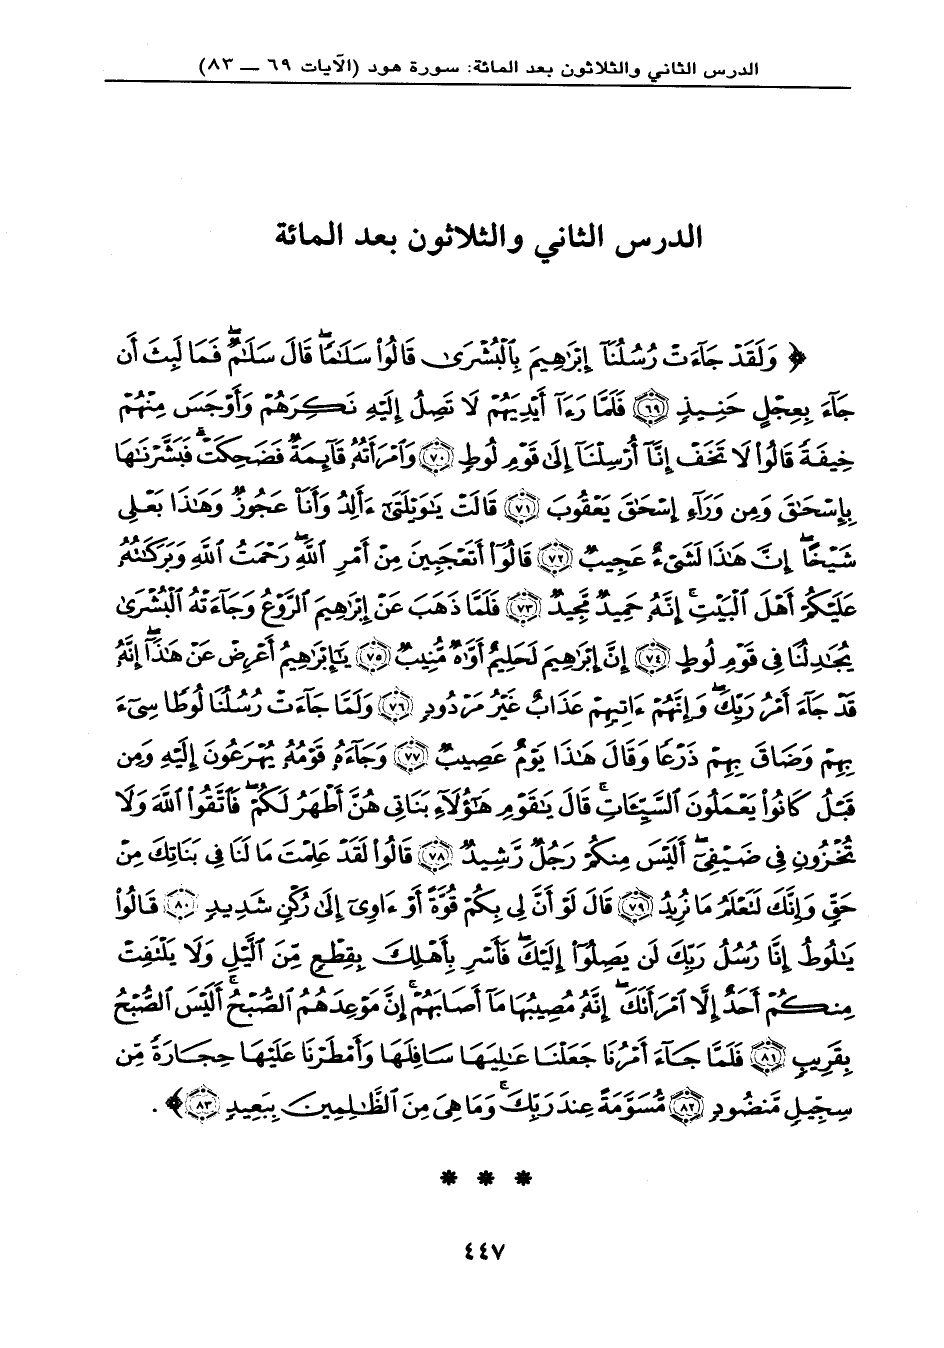 الدرس الثاني والثلاثون بعد المائة: سورة هود (الآيات ٦٩ — ٨٣)
الدرس الثاني والثلاثون بعد المائة
﴿ وَلَقَدْ جَآءَتْ رُسُلُنَآ إِبْرَٰهِيمَ بِٱلْبُشْرَىٰ قَالُوا۟ سَلَٰمًا ۖ قَالَ سَلَٰمٌ ۖ فَمَا لَبِثَ أَن
جَآءَ بِعِجْلٍ حَنِيذٍ ﴿٦٩﴾ فَلَمَّا رَءَآ أَيْدِيَهُمْ لَا تَصِلُ إِلَيْهِ نَكِرَهُمْ وَأَوْجَسَ مِنْهُمْ
خِيفَةً ۚ قَالُوا۟ لَا تَخَفْ إِنَّآ أُرْسِلْنَآ إِلَىٰ قَوْمِ لُوطٍ ﴿٧٠﴾ وَٱمْرَأَتُهُۥ قَآئِمَةٌ فَضَحِكَتْ فَبَشَّرْنَٰهَا
بِإِسْحَٰقَ وَمِن وَرَآءِ إِسْحَٰقَ يَعْقُوبَ ﴿٧١﴾ قَالَتْ يَٰوَيْلَتَىٰٓ ءَأَلِدُ وَأَنَا۠ عَجُوزٌ وَهَٰذَا بَعْلِى
شَيْخًا ۖ إِنَّ هَٰذَا لَشَىْءٌ عَجِيبٌ ﴿٧٢﴾ قَالُوٓا۟ أَتَعْجَبِينَ مِنْ أَمْرِ ٱللَّهِ ۖ رَحْمَتُ ٱللَّهِ وَبَرَكَٰتُهُۥ
عَلَيْكُمْ أَهْلَ ٱلْبَيْتِ ۚ إِنَّهُۥ حَمِيدٌ مَّجِيدٌ ﴿٧٣﴾ فَلَمَّا ذَهَبَ عَنْ إِبْرَٰهِيمَ ٱلرَّوْعُ وَجَآءَتْهُ ٱلْبُشْرَىٰ
يُجَٰدِلُنَا فِى قَوْمِ لُوطٍ ﴿٧٤﴾ إِنَّ إِبْرَٰهِيمَ لَحَلِيمٌ أَوَّٰهٌ مُّنِيبٌ ﴿٧٥﴾ يَٰٓإِبْرَٰهِيمُ أَعْرِضْ عَنْ هَٰذَآ ۖ إِنَّهُۥ
قَدْ جَآءَ أَمْرُ رَبِّكَ ۖ وَإِنَّهُمْ ءَاتِيهِمْ عَذَابٌ غَيْرُ مَرْدُودٍ ﴿٧٦﴾ وَلَمَّا جَآءَتْ رُسُلُنَا لُوطًا سِىٓءَ
بِهِمْ وَضَاقَ بِهِمْ ذَرْعًا وَقَالَ هَٰذَا يَوْمٌ عَصِيبٌ ﴿٧٧﴾ وَجَآءَهُۥ قَوْمُهُۥ يُهْرَعُونَ إِلَيْهِ وَمِن
قَبْلُ كَانُوا۟ يَعْمَلُونَ ٱلسَّيِّـَٔاتِ ۚ قَالَ يَٰقَوْمِ هَٰٓؤُلَآءِ بَنَاتِى هُنَّ أَطْهَرُ لَكُمْ ۖ فَٱتَّقُوا۟ ٱللَّهَ وَلَا
تُخْزُونِ فِى ضَيْفِىٓ ۖ أَلَيْسَ مِنكُمْ رَجُلٌ رَّشِيدٌ ﴿٧٨﴾ قَالُوا۟ لَقَدْ عَلِمْتَ مَا لَنَا فِى بَنَاتِكَ مِنْ
حَقٍّ وَإِنَّكَ لَتَعْلَمُ مَا نُرِيدُ ﴿٧٩﴾ قَالَ لَوْ أَنَّ لِى بِكُمْ قُوَّةً أَوْ ءَاوِىٓ إِلَىٰ رُكْنٍ شَدِيدٍ ﴿٨٠﴾ قَالُوا۟
يَٰلُوطُ إِنَّا رُسُلُ رَبِّكَ لَن يَصِلُوٓا۟ إِلَيْكَ ۖ فَأَسْرِ بِأَهْلِكَ بِقِطْعٍ مِّنَ ٱلَّيْلِ وَلَا يَلْتَفِتْ
مِنكُمْ أَحَدٌ إِلَّا ٱمْرَأَتَكَ ۖ إِنَّهُۥ مُصِيبُهَا مَآ أَصَابَهُمْ ۚ إِنَّ مَوْعِدَهُمُ ٱلصُّبْحُ ۚ أَلَيْسَ ٱلصُّبْحُ
بِقَرِيبٍ ﴿٨١﴾ فَلَمَّا جَآءَ أَمْرُنَا جَعَلْنَا عَٰلِيَهَا سَافِلَهَا وَأَمْطَرْنَا عَلَيْهَا حِجَارَةً مِّن
سِجِّيلٍ مَّنضُودٍ ﴿٨٢﴾ مُّسَوَّمَةً عِندَ رَبِّكَ ۖ وَمَا هِىَ مِنَ ٱلظَّٰلِمِينَ بِبَعِيدٍ ﴿٨٣﴾ ﴾ .
* * *
٤٤٧